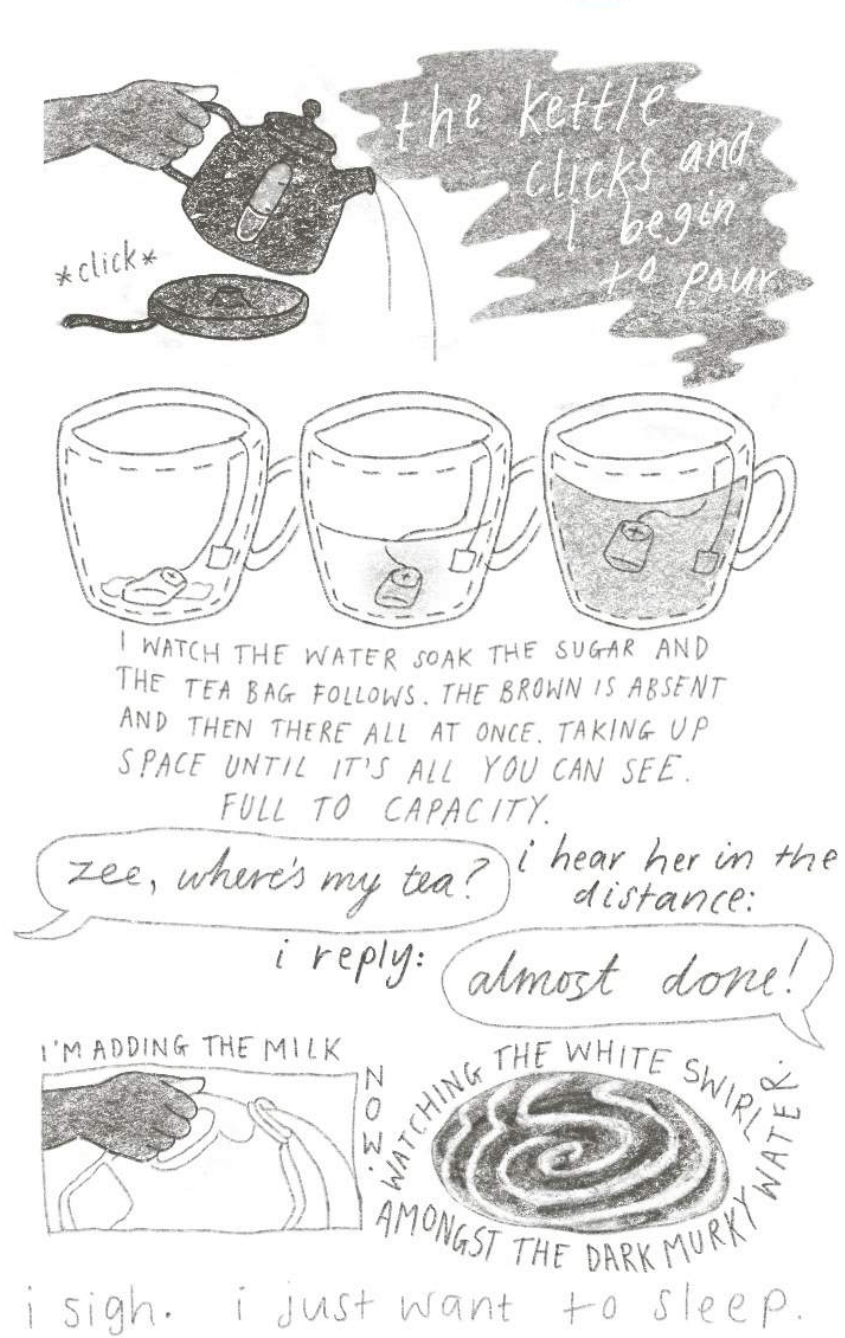 the kettle
clicks and
I begin
to pour
*click*
I WATCH THE WATER SOAK THE SUGAR AND
THE TEA BAG FOLLOWS. THE BROWN IS ABSENT
AND THEN THERE ALL AT ONCE. TAKING UP
SPACE UNTIL IT'S ALL YOU CAN SEE.
FULL TO CAPACITY.
zee, where's my tea?
i hear her in the
distance:
i reply:
almost done!
I'M ADDING THE MILK
NOW.
WATCHING THE WHITE SWIRL
AMONGST THE DARK MURKY WATER.
i sigh. i just want to sleep.